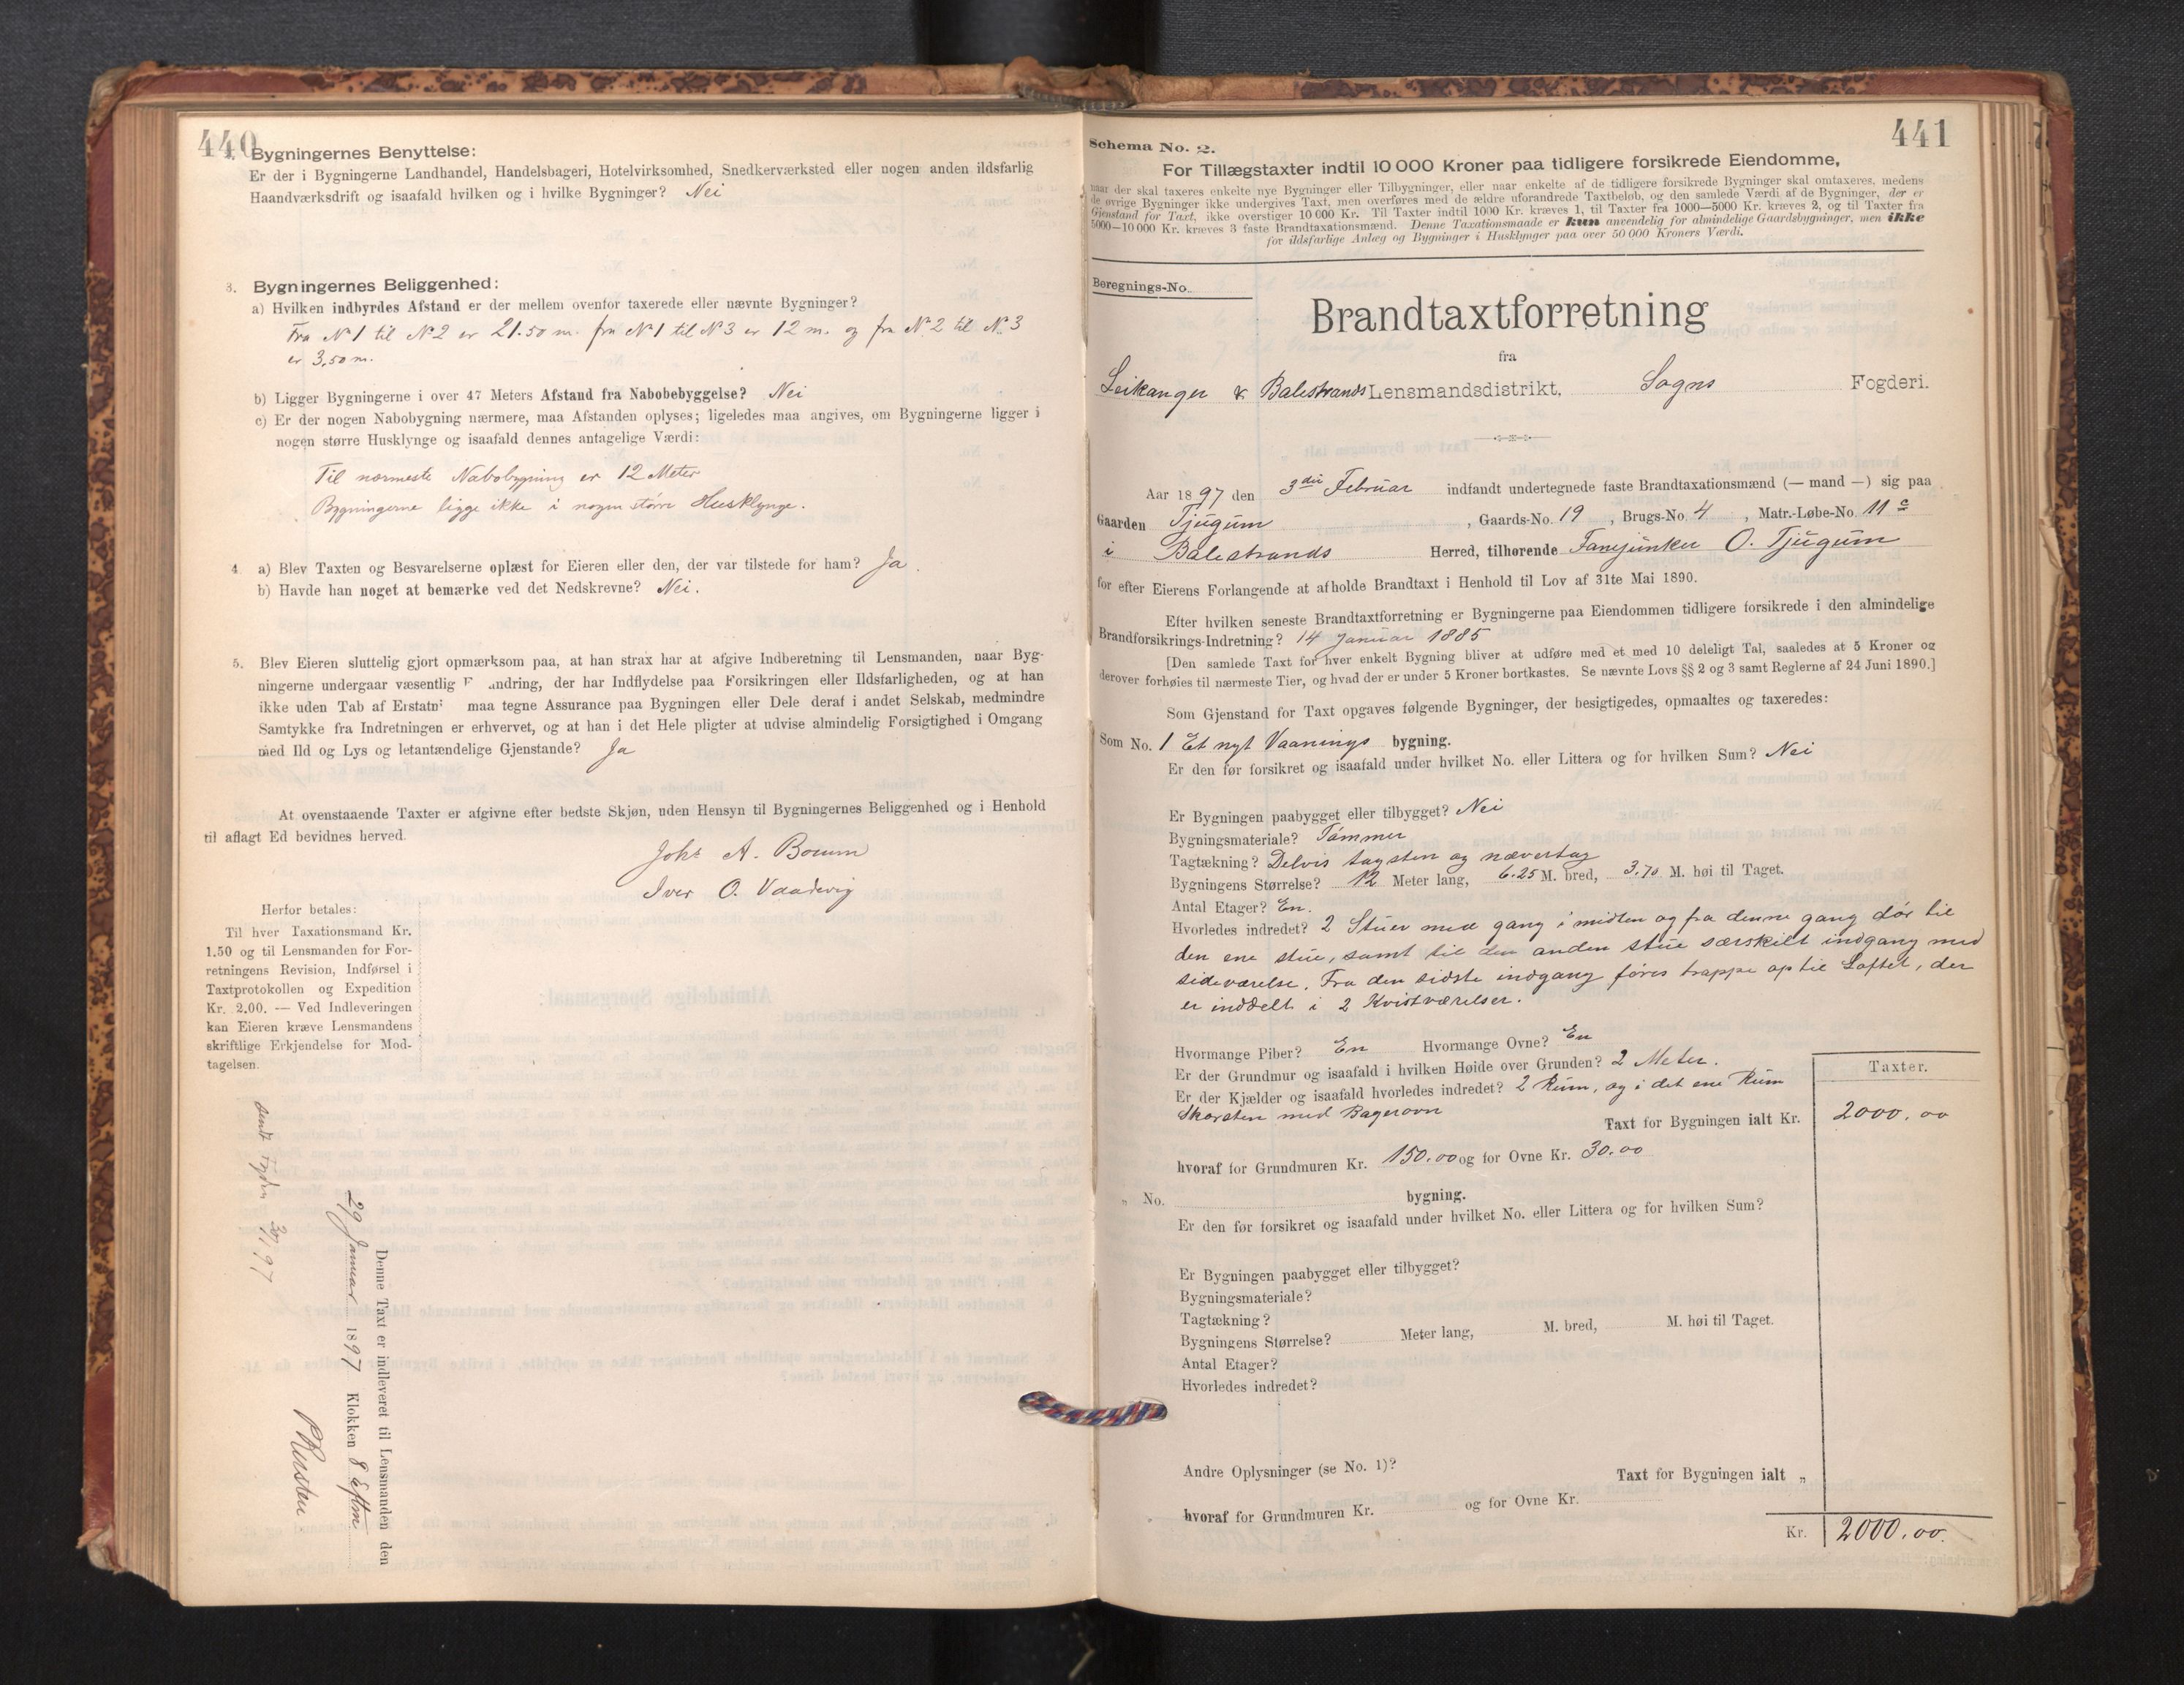 440
Bygningernes Benyttelse:
Er der i Bygningerne Landhandel, Handelsbageri, Hotelvirksomhed, Snedkerværksted eller nogen anden ildsfarlig
Haandværksdrift og isaafald hvilken og i hvilke Bygninger? Nei
3. Bygningernes Beliggenhed:
a) Hvilken indbyrdes Afstand er der mellem ovenfor taxerede eller nævnte Bygninger?
Fra N 1 til N 2 er 21.50 m. fra N 1 til N 3 er 12 m. og fra N. 2 til N. 3
er 3,50 m.
b) Ligger Bygningerne i over 47 Meters Afstand fra Nabobebyggelse? Nei
c) Er der nogen Nabobygning nærmere, maa Afstanden oplyses; ligeledes maa angives, om Bygningerne ligger i
nogen større Husklynge og isaafald dennes antagelige Værdi:
Til nærmeste Nabobygning er 12 Meter
Bygningerne ligge ikke i nogen større Husklynge.
4. a) Blev Taxten og Besvarelserne oplæst for Eieren eller den, der var tilstede for ham? Ja.
b) Havde han noget at bemærke ved det Nedskrevne? Nei.
5. Blev Eieren sluttelig gjort opmærksom paa, at han strax har at afgive Indberetning til Lensmanden, naar Byg-
ningerne undergaar væsentlig F andring, der har Indflydelse paa Forsikringen eller Ildsfarligheden, og at han
ikke uden Tab af Erstatn maa tegne Assurance paa Bygningen eller Dele deraf i andet Selskab, medmindre
Samtykke fra Indretningen er erhvervet, og at han i det Hele pligter at udvise almindelig Forsigtighed i Omgang
med Ild og Lys og letantændelige Gjenstande? Ja
At ovenstaaende Taxter er afgivne efter bedste Skjøn, uden Hensyn til Bygningernes Beliggenhed og i Henhold
til aflagt Ed bevidnes herved.
Johs A. Bouum
Iver O. Vaadevig
Herfor betales:
Til hver Taxationsmand Kr.
1.50 og til Lensmanden for For-
retningens Revision, Indførsel i
Taxtprotokollen og Expedition
Kr. 2.00. — Ved Indleveringen
kan Eieren kræve Lensmandens
skriftlige Erkjendelse for Mod-
tagelsen.
Denne Taxt er indleveret til Lensmanden den
29 Januar 1897 Klokken 8 Eftm
441
Schema No. 2.
For Tillægstaxter indtil 10 000 Kroner paa tidligere forsikrede Eiendomme,
naar der skal taxeres enkelte nye Bygninger eller Tilbygninger, eller naar enkelte af de tidligere forsikrede Bygninger skal omtaxeres, medens
de øvrige Bygninger ikke undergives Taxt, men overføres med de ældre uforandrede Taxtbeløb, og den samlede Værdi af de Bygninger, der er
Gjenstand for Taxt, ikke overstiger 10 000 Kr. Til Taxter indtil 1000 Kr. kræves 1, til Taxter fra 1000—5000 Kr. kræves 2, og til Taxter fra
5000—10 000 Kr. kræves 3 faste Brandtaxationsmænd. Denne Taxationsmaade er kun anvendelig for almindelige Gaardsbygninger, men ikke
for ildsfarlige Anlæg og Bygninger i Husklynger paa over 50 000 Kroners Værdi.
Beregnings-No.
Brandtaxtforretning
fra
Leikanger & Balestrands Lensmandsdistrikt, Sogns Fogderi.
Aar 1897 den 3die Februar indfandt undertegnede faste Brandtaxationsmænd (— mand —) sig paa
Gaarden Tjugum, Gaards-No. 19, Brugs-No. 4, Matr.-Løbe-No. 11 c
i Balestrands Herred, tilhørende Fanejunker O. Tjugum
for efter Eierens Forlangende at afholde Brandtaxt i Henhold til Lov af 31te Mai 1890.
Efter hvilken seneste Brandtaxtforretning er Bygningerne paa Eiendommen tidligere forsikrede i den almindelige
Brandforsikrings-Indretning? 14 Januar 1885
[Den samlede Taxt for hver enkelt Bygning bliver at udføre med et med 10 deleligt Tal, saaledes at 5 Kroner og
derover forhøies til nærmeste Tier, og hvad der er under 5 Kroner bortkastes. Se nævnte Lovs §§ 2 og 3 samt Reglerne af 24 Juni 1890.]
Som Gjenstand for Taxt opgaves følgende Bygninger, der besigtigedes, opmaaltes og taxeredes:
Som No. 1 Et nyt Vaanings bygning.
Er den før forsikret og isaafald under hvilket No. eller Littera og for hvilken Sum? Nei
Er Bygningen paabygget eller tilbygget? Nei
Bygningsmateriale? Tømmer
Tagtækning? Delvis tagsten og nævertag
Bygningens Størrelse? 12 Meter lang, 6.25 M. bred, 3.70 M. høi til Taget.
Antal Etager? En.
Hvorledes indredet? 2 Stuer med gang i midten og fra denne gang dør til
den ene stue, samt til den anden stue særskilt indgang med
sideværelse. Fra den sidste indgang føres trappe op til Loftet, der
er inddelt i 2 Kvistværelser.
Hvormange Piber? En Hvormange Ovne? En
Er der Grundmur og isaafald i hvilken Høide over Grunden? 2 Meter.
Er der Kjælder og isaafald hvorledes indredet? 2 Rum, og i det ene Rum
Skorsten med Bagerovn
Taxter.
Taxt for Bygningen ialt Kr. 2000.00
hvoraf for Grundmuren Kr. 150.00 og for Ovne Kr. 30.00
„ No. bygning.
Er den før forsikret og isaafald under hvilket No. eller Littera og for hvilken Sum?
Er Bygningen paabygget eller tilbygget?
Bygningsmateriale?
Tagtækning?
Bygningens Størrelse? Meter lang, M. bred, M. høi til Taget.
Antal Etager?
Hvorledes indredet?
Andre Oplysninger (se No. 1)?
Taxt for Bygningen ialt „
hvoraf for Grundmuren Kr. og for Ovne Kr.
Kr. 2000.00